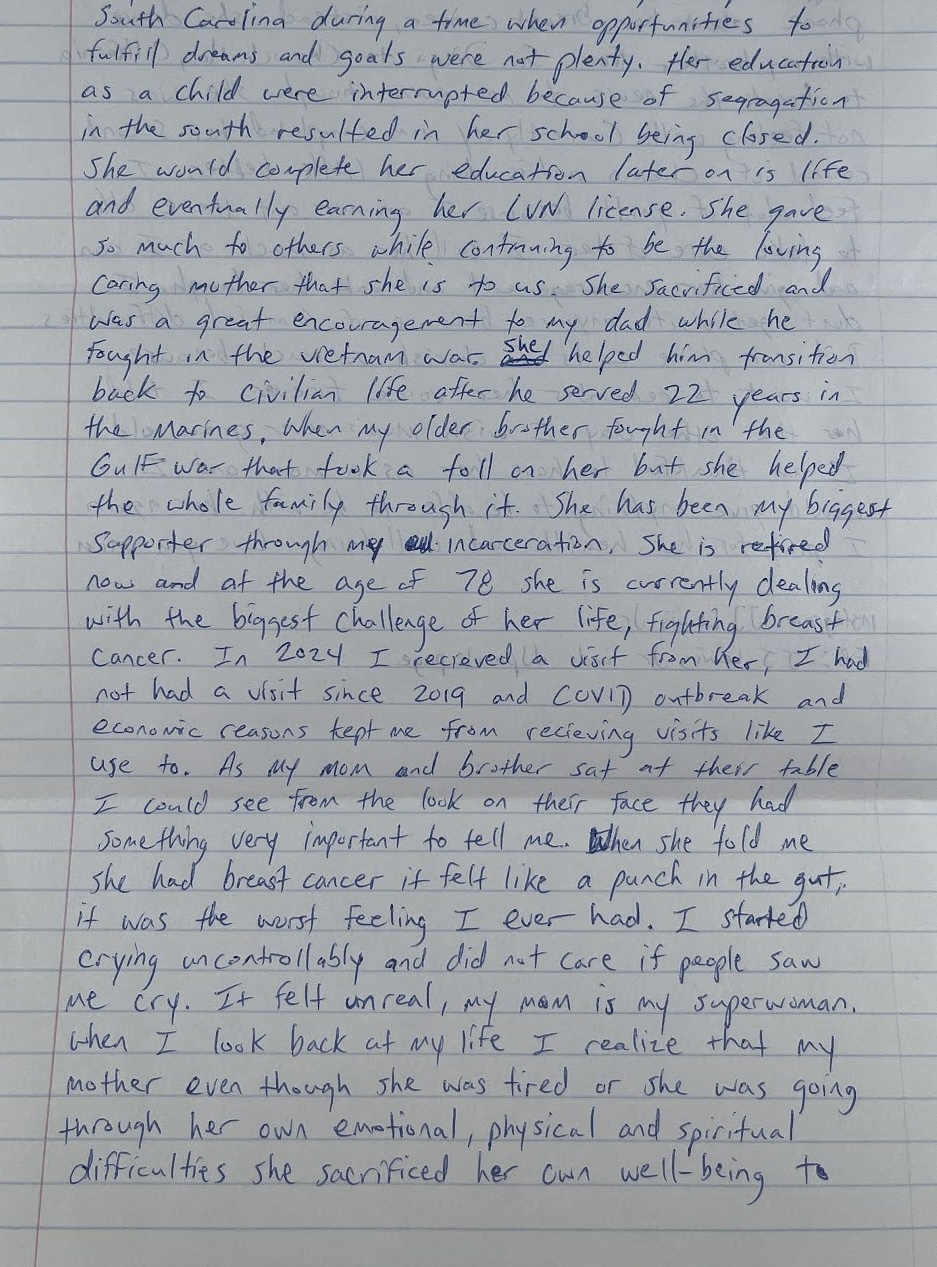 South Carolina during a time when opportunities to
fulfill dreams and goals were not plenty. Her education
as a child were interrupted because of segragation
in the south resulted in her school being closed.
She would complete her education later on is life
and eventually earning her LVN license. She gave
so much to others while continuing to be the loving
caring mother that she is to us. She sacrificed and
was a great encouragement to my dad while he
fought in the vietnam war. she helped him transition
back to civilian life after he served 22 years in
the Marines. When my older brother fought in the
Gulf war that took a toll on her but she helped
the whole family through it. She has been my biggest
supporter through my incarceration. She is retired
now and at the age of 78 she is currently dealing
with the biggest challenge of her life, fighting breast
cancer. In 2024 I recieved a visit from her, I had
not had a visit since 2019 and COVID outbreak and
economic reasons kept me from recieving visits like I
use to. As my mom and brother sat at their table
I could see from the look on their face they had
something very important to tell me. When she told me
she had breast cancer it felt like a punch in the gut,
it was the worst feeling I ever had. I started
crying uncontrollably and did not care if people saw
me cry. It felt unreal, my mom is my superwoman.
When I look back at my life I realize that my
mother even though she was tired or she was going
through her own emotional, physical and spiritual
difficulties she sacrificed her own well-being to